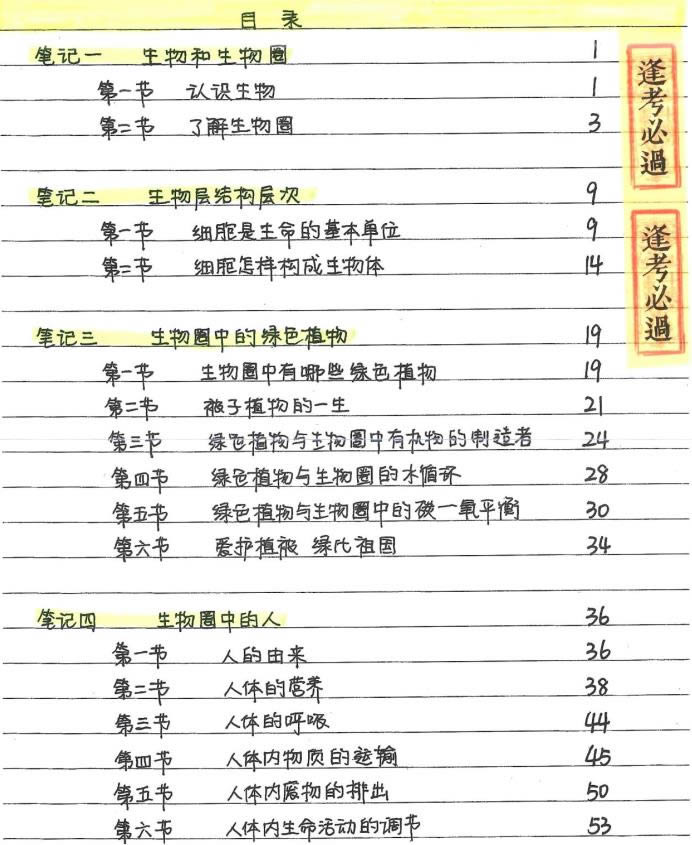 目录
笔记一 生物和生物圈 1
第一节 认识生物 1
第二节 了解生物圈 3
笔记二 生物层结构层次 9
第一节 细胞是生命的基本单位 9
第二节 细胞怎样构成生物体 14
笔记三 生物圈中的绿色植物 19
第一节 生物圈中有哪些绿色植物 19
第二节 被子植物的一生 21
第三节 绿色植物与生物圈中有机物的制造者 24
第四节 绿色植物与生物圈的水循环 28
第五节 绿色植物与生物圈中的碳一氧平衡 30
第六节 爱护植被 绿化祖国 34
笔记四 生物圈中的人 36
第一节 人的由来 36
第二节 人体的营养 38
第三节 人体的呼吸 44
第四节 人体内物质的运输 45
第五节 人体内废物的排出 50
第六节 人体内生命活动的调节 53
逢考必過
逢考必過